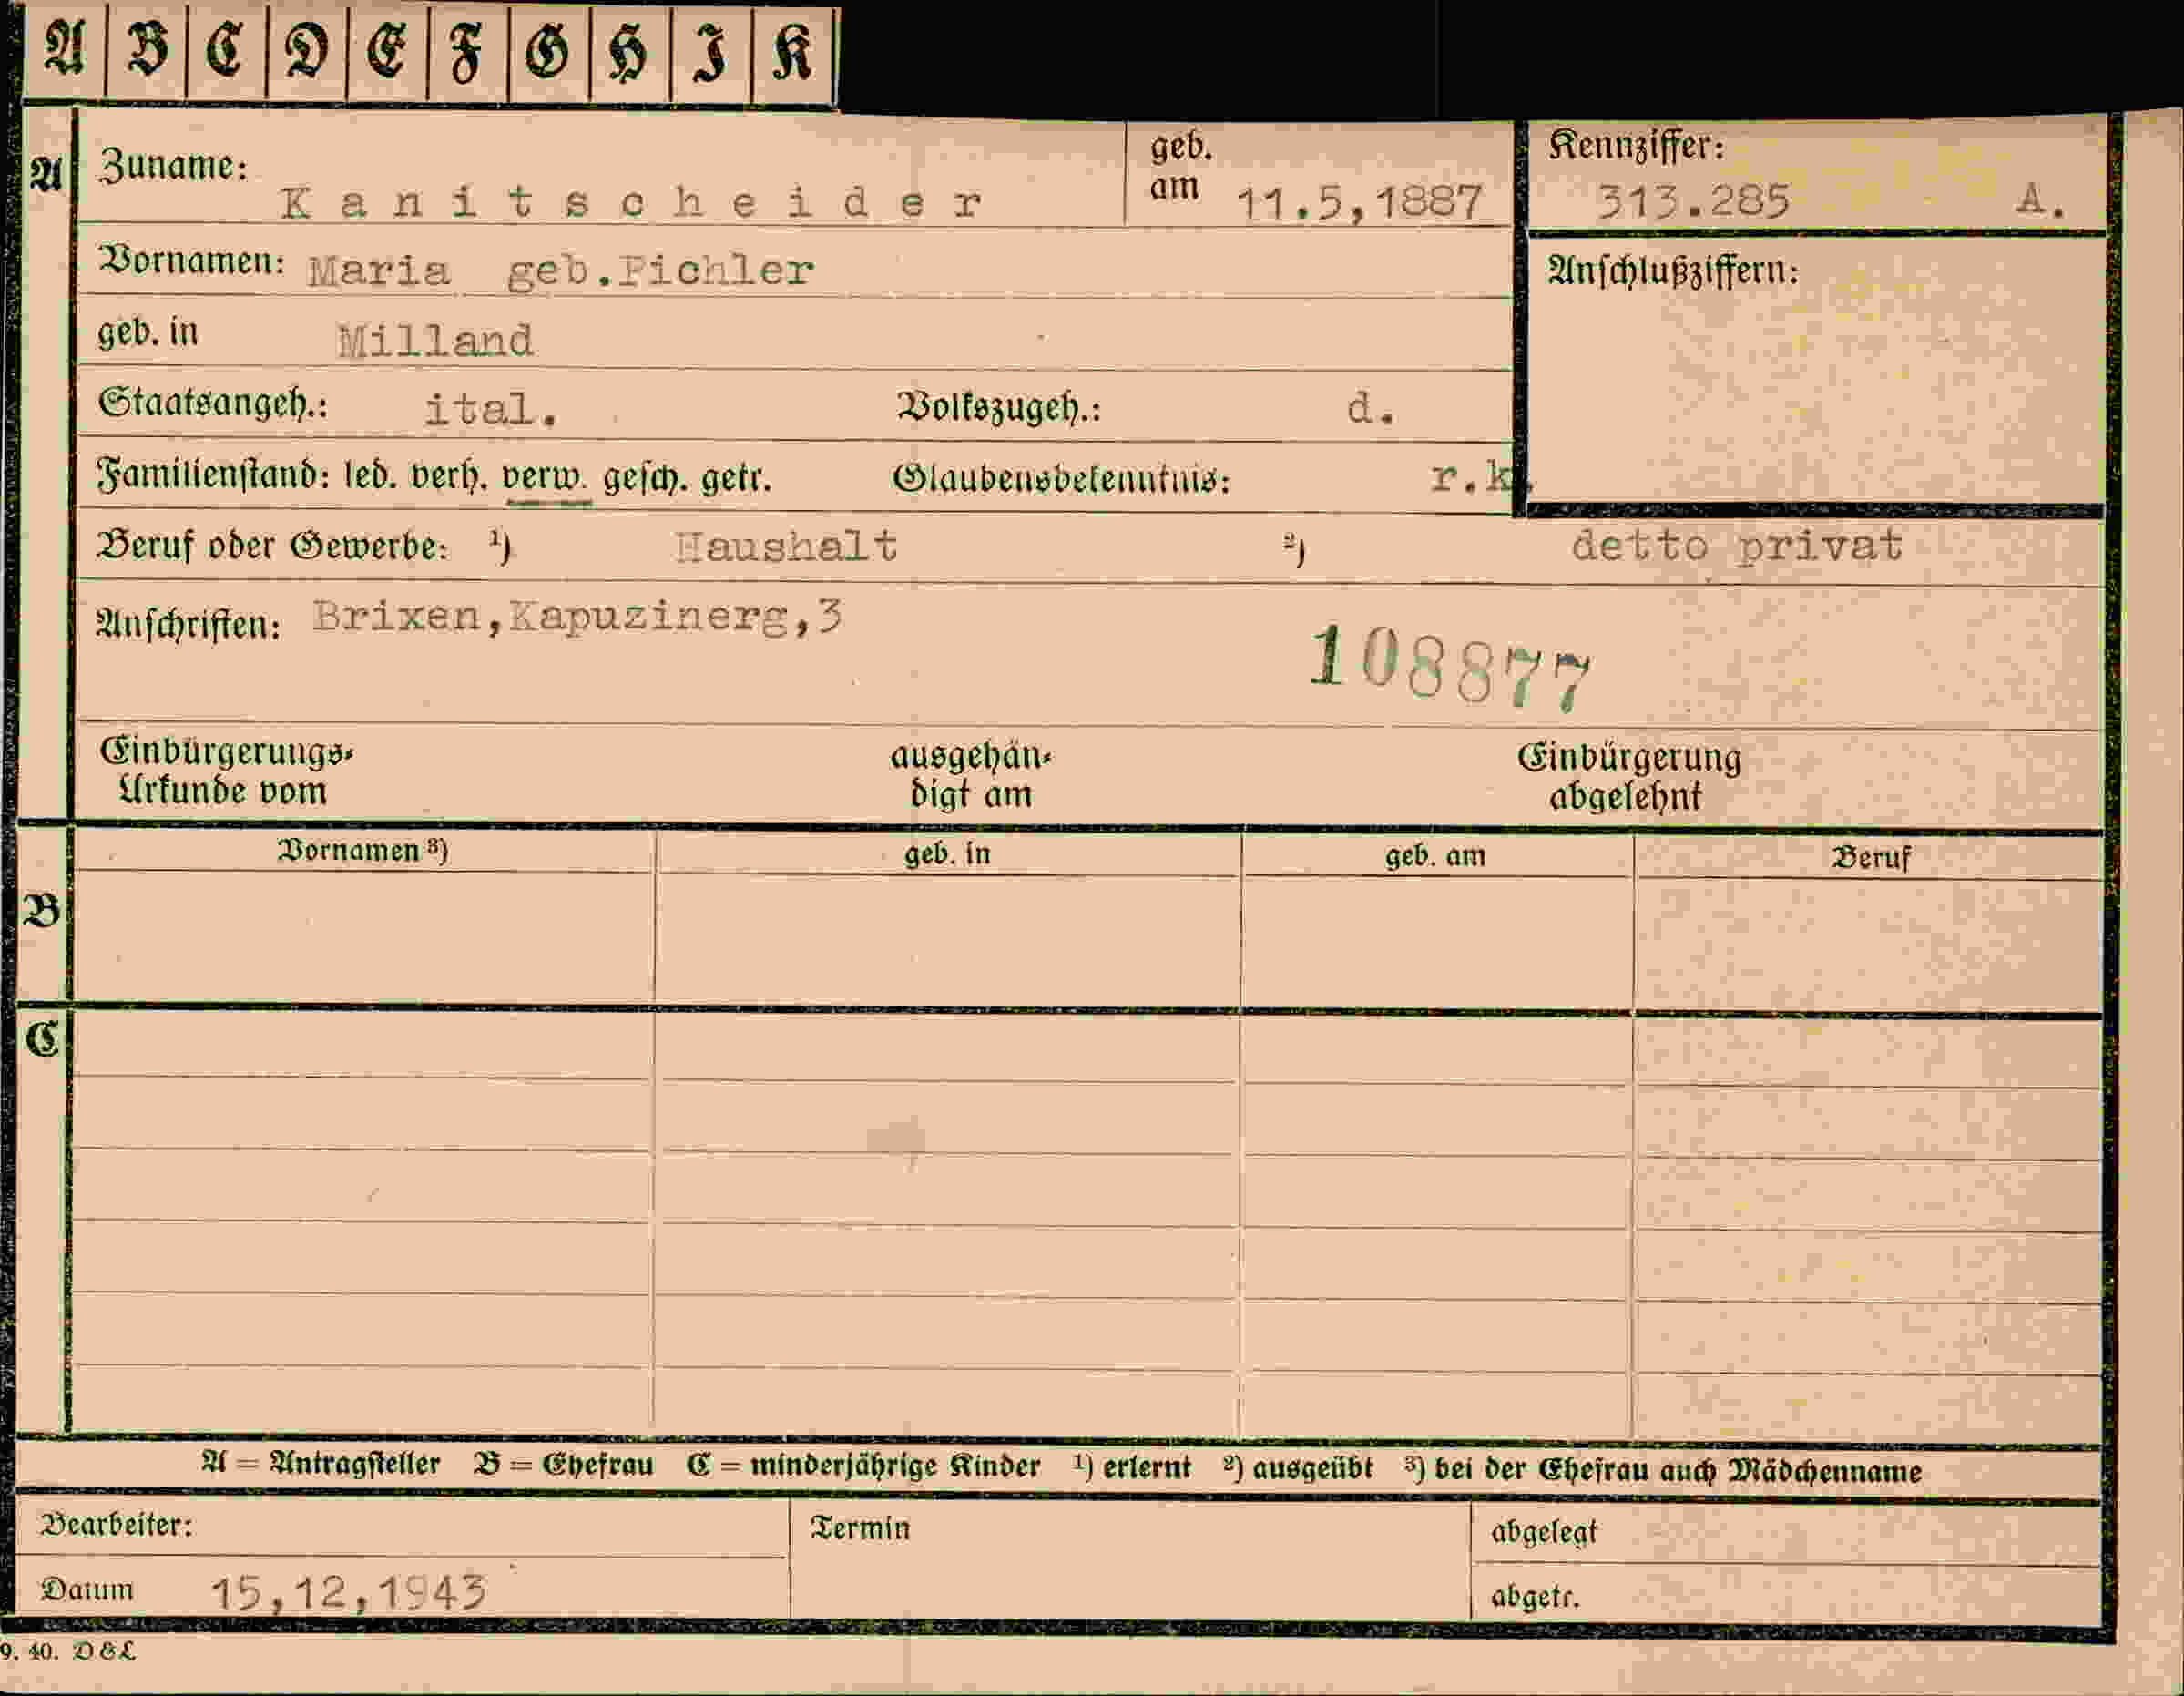 A B C D E F G H I K
A Zuname: Kanitscheider geb. am 11.5,1887 Kennziffer: 313.285 A.
Vornamen: Maria geb.Pichler Anschlußziffern:
geb. in Milland
Staatsangeh.: ital. Volkszugeh.: d.
Familienstand: led. verh. verw. gesch. getr. Glaubensbekenntnis: r.k.
Beruf oder Gewerbe: ¹) Haushalt ²) detto privat
Anschriften: Brixen,Kapuzinerg,3
108877
Einbürgerungs- ausgehän- Einbürgerung
Urkunde vom digt am abgelehnt
Vornamen ³) geb. in geb. am Beruf
B
C
A = Antragsteller B = Ehefrau C = minderjährige Kinder ¹) erlernt ²) ausgeübt ³) bei der Ehefrau auch Mädchenname
Bearbeiter: Termin abgelegt
Datum 15,12,1943 abgetr.
9. 40. D&L